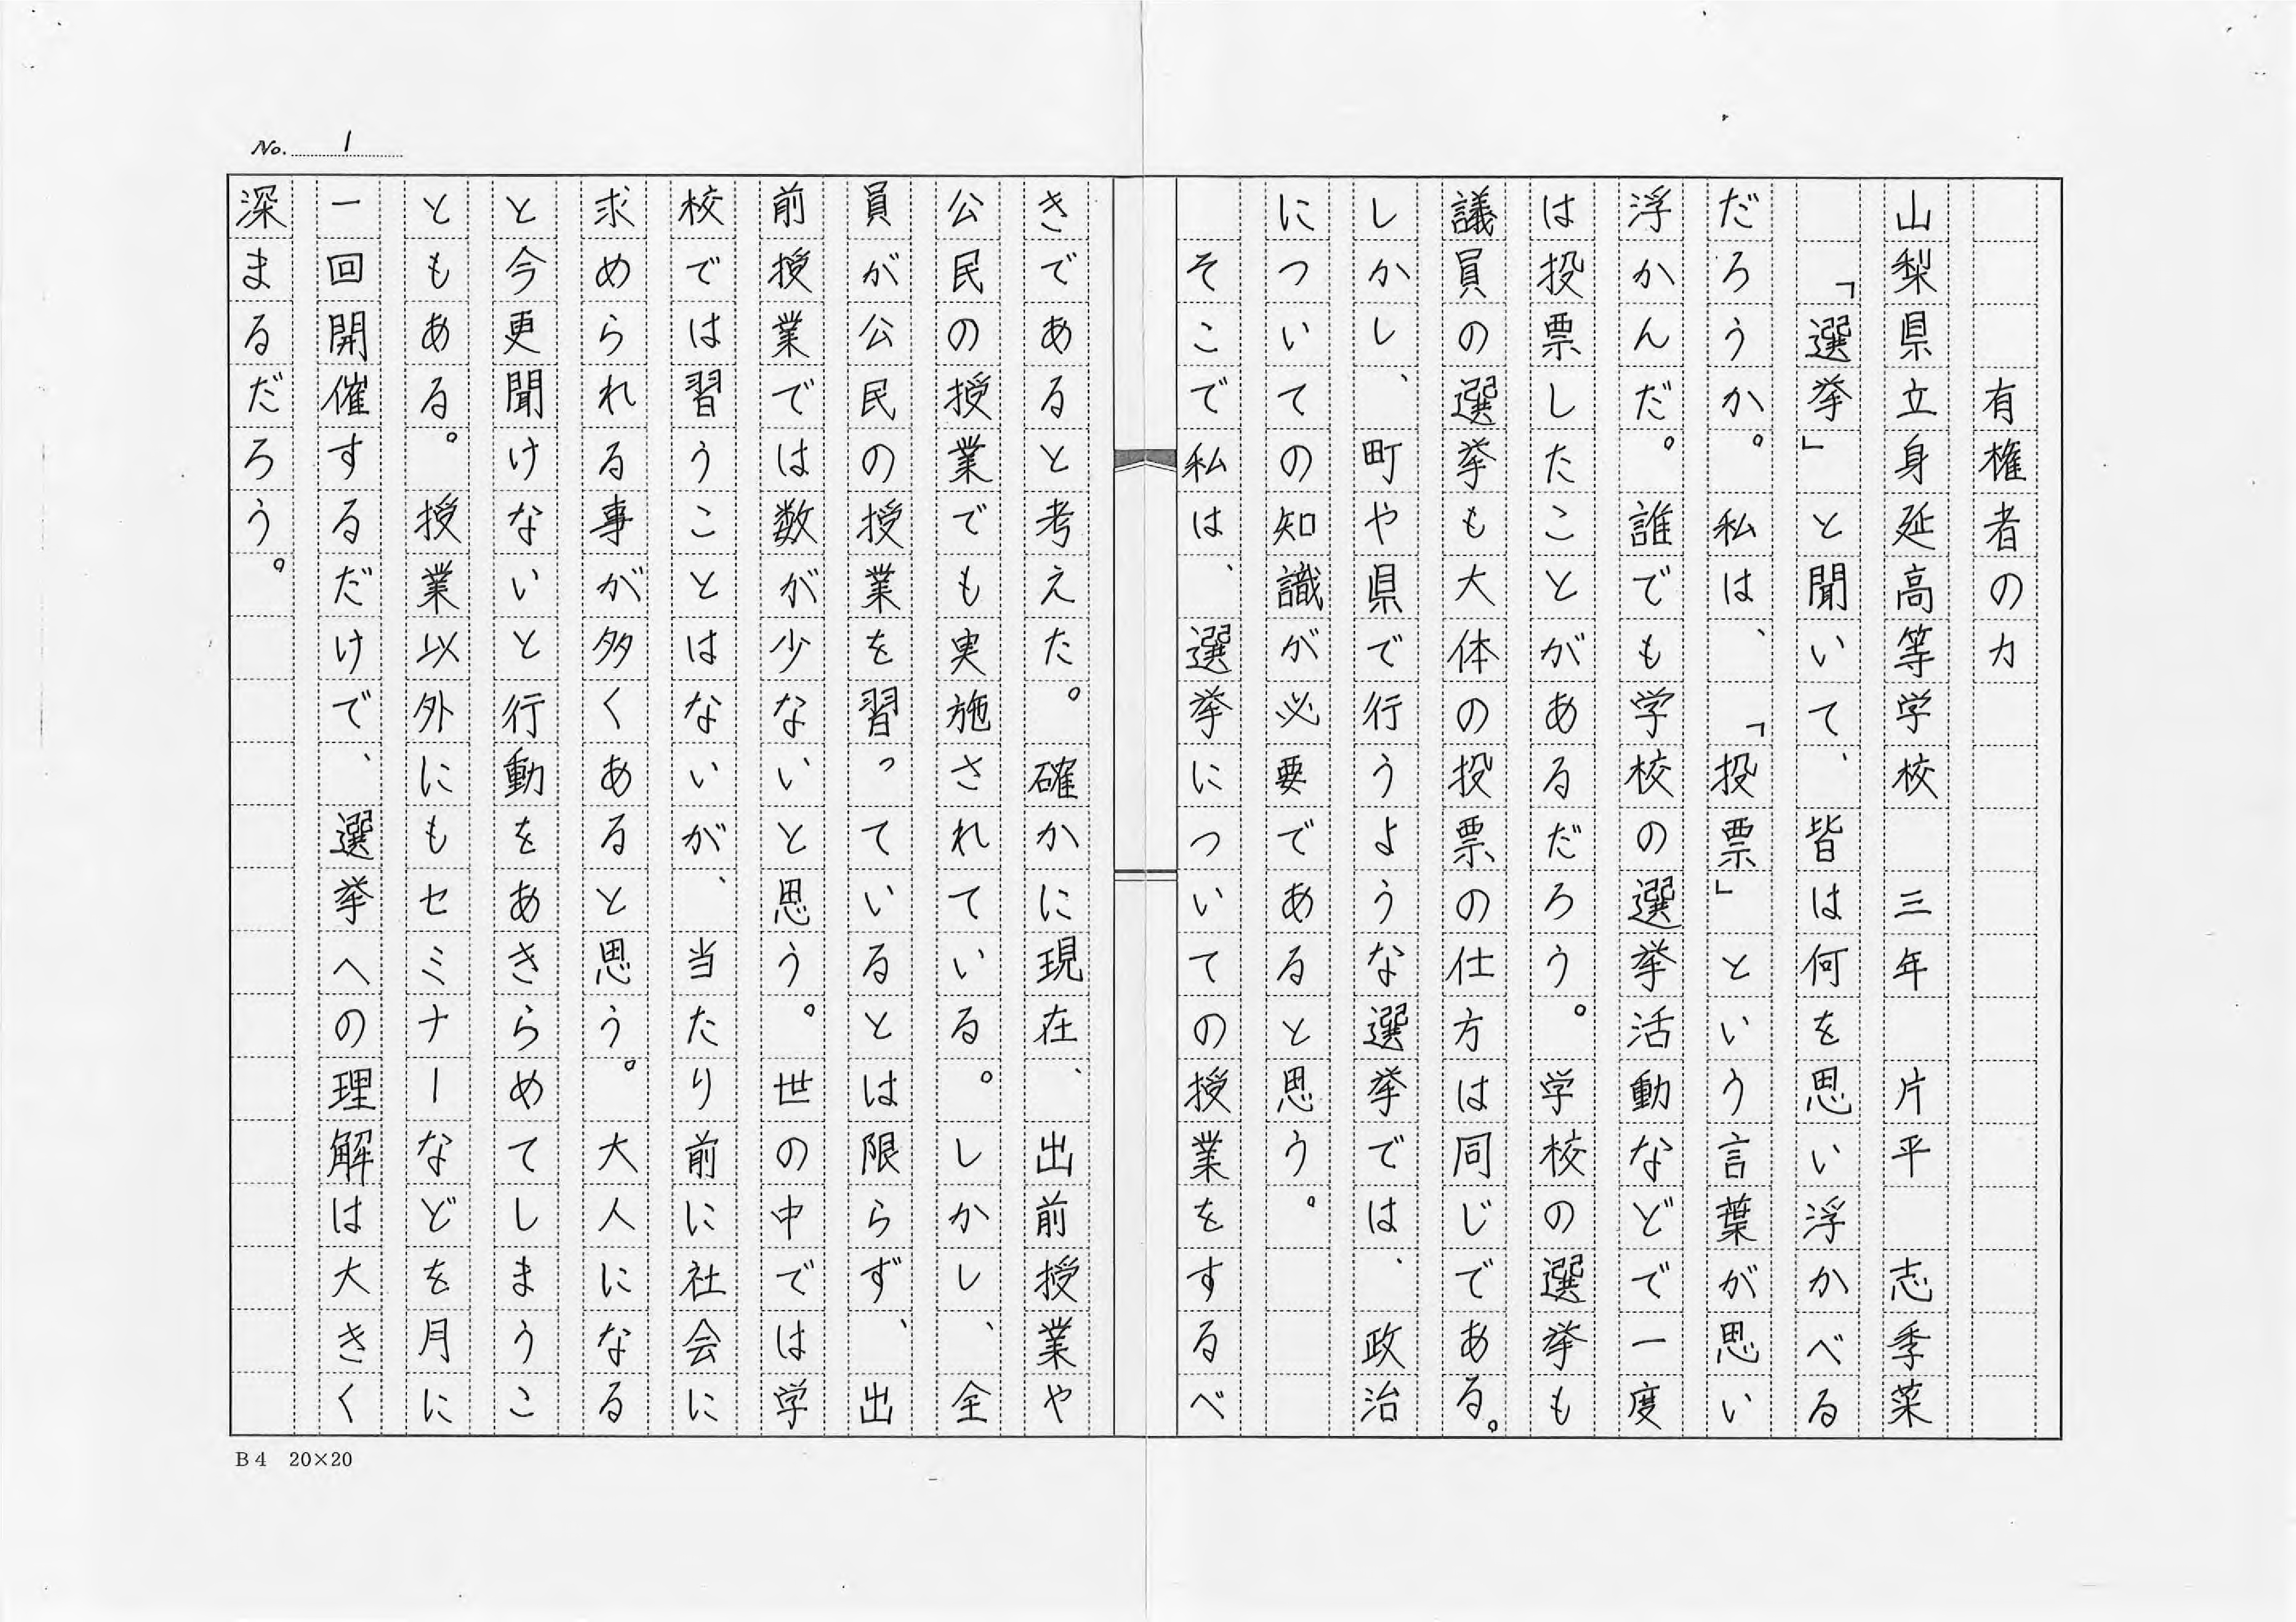 No. 1
有権者の力
山梨県立身延高等学校 三年 片平 志季菜
「選挙」と聞いて、皆は何を思い浮かべる
だろうか。私は、「投票」という言葉が思い
浮かんだ。誰でも学校の選挙活動などで一度
は投票したことがあるだろう。学校の選挙も
議員の選挙も大体の投票の仕方は同じである。
しかし、町や県で行うような選挙では、政治
についての知識が必要であると思う。
そこで私は、選挙についての授業をするべ
きであると考えた。確かに現在、出前授業や
公民の授業でも実施されている。しかし、全
員が公民の授業を習っているとは限らず、出
前授業では数が少ないと思う。世の中では学
校では習うことはないが、当たり前に社会に
求められる事が多くあると思う。大人になる
と今更聞けないと行動をあきらめてしまうこ
ともある。授業以外にもセミナーなどを月に
一回開催するだけで、選挙への理解は大きく
深まるだろう。
B4 20×20